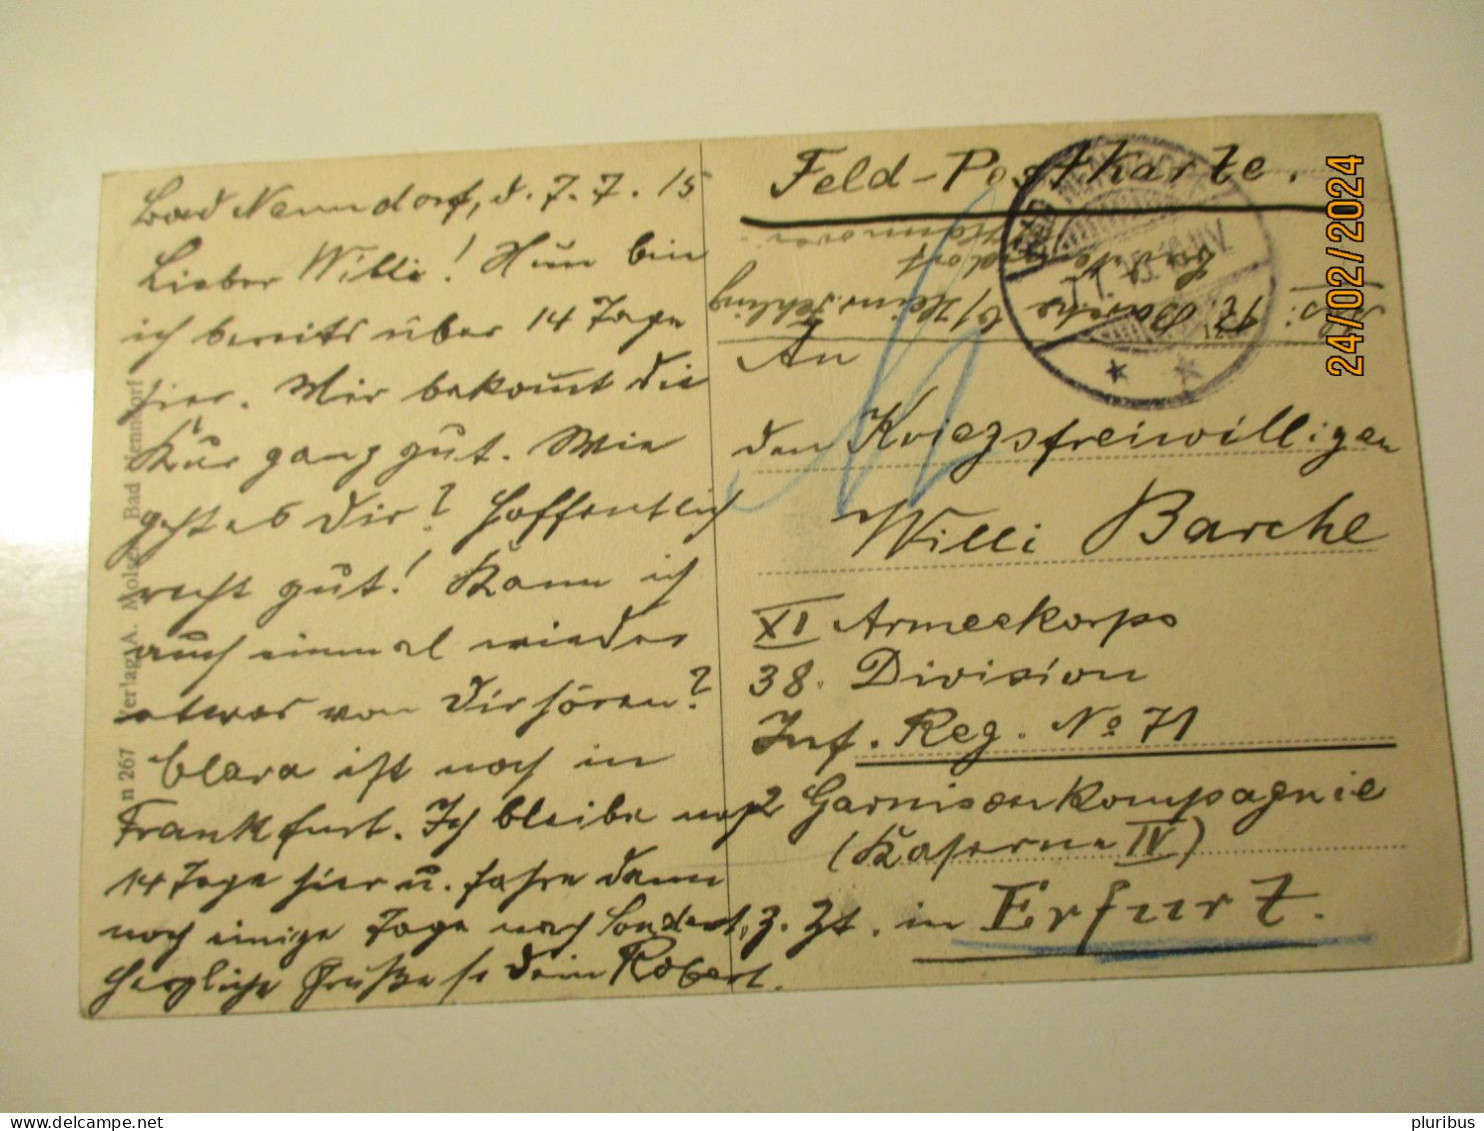 Bad Nenndorf, d. 7.7.15
Lieber Willi! Nun bin
ich bereits über 14 Tage
hier. Mir bekom̄t die
Kur ganz gut. Wie
geht es Dir? Hoffentlich
recht gut! Kann ich
auch einmal wieder
etwas von Dir hören?
Clara ist noch in
Frankfurt. Ich bleibe noch
14 Tage hier u. fahre dann
noch einige Tage nach
Herzliche Grüße Dein Robert.
n 267 Verlag A. Bad Nenndorf
Feld-Postkarte.
Hannover
Bad Nenndorf
An
den Kriegsfreiwilligen
Willi Barche
XI Armeekorps
38. Division
Inf. Reg. No 71
2 Garnisonkompagnie
(Kaserne IV)
z. Zt. in Erfurt.
24/02/2024
delcampe.net
pluribus